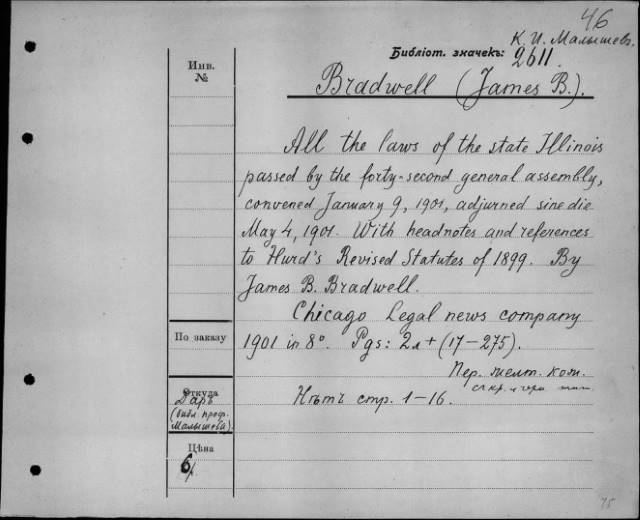 46
К. И. Малышев.
Библіот. значекъ: 2611.
Инв.
№
Bradwell (James B.).
All the laws of the state Illinois
passed by the forty-second general assembly,
convened January 9, 1901, adjurned sine die
May 4, 1901. With headnotes and references
to Hurd's Revised Statutes of 1899. By
James B. Bradwell.
Chicago Legal news company
По заказу
1901 in 8°. Pgs: 2л + (17-275).
Пер. желт. кож.
Откуда
Даръ
(библ. проф.
Малышева).
Нѣтъ стр. 1-16.
Цѣна
75